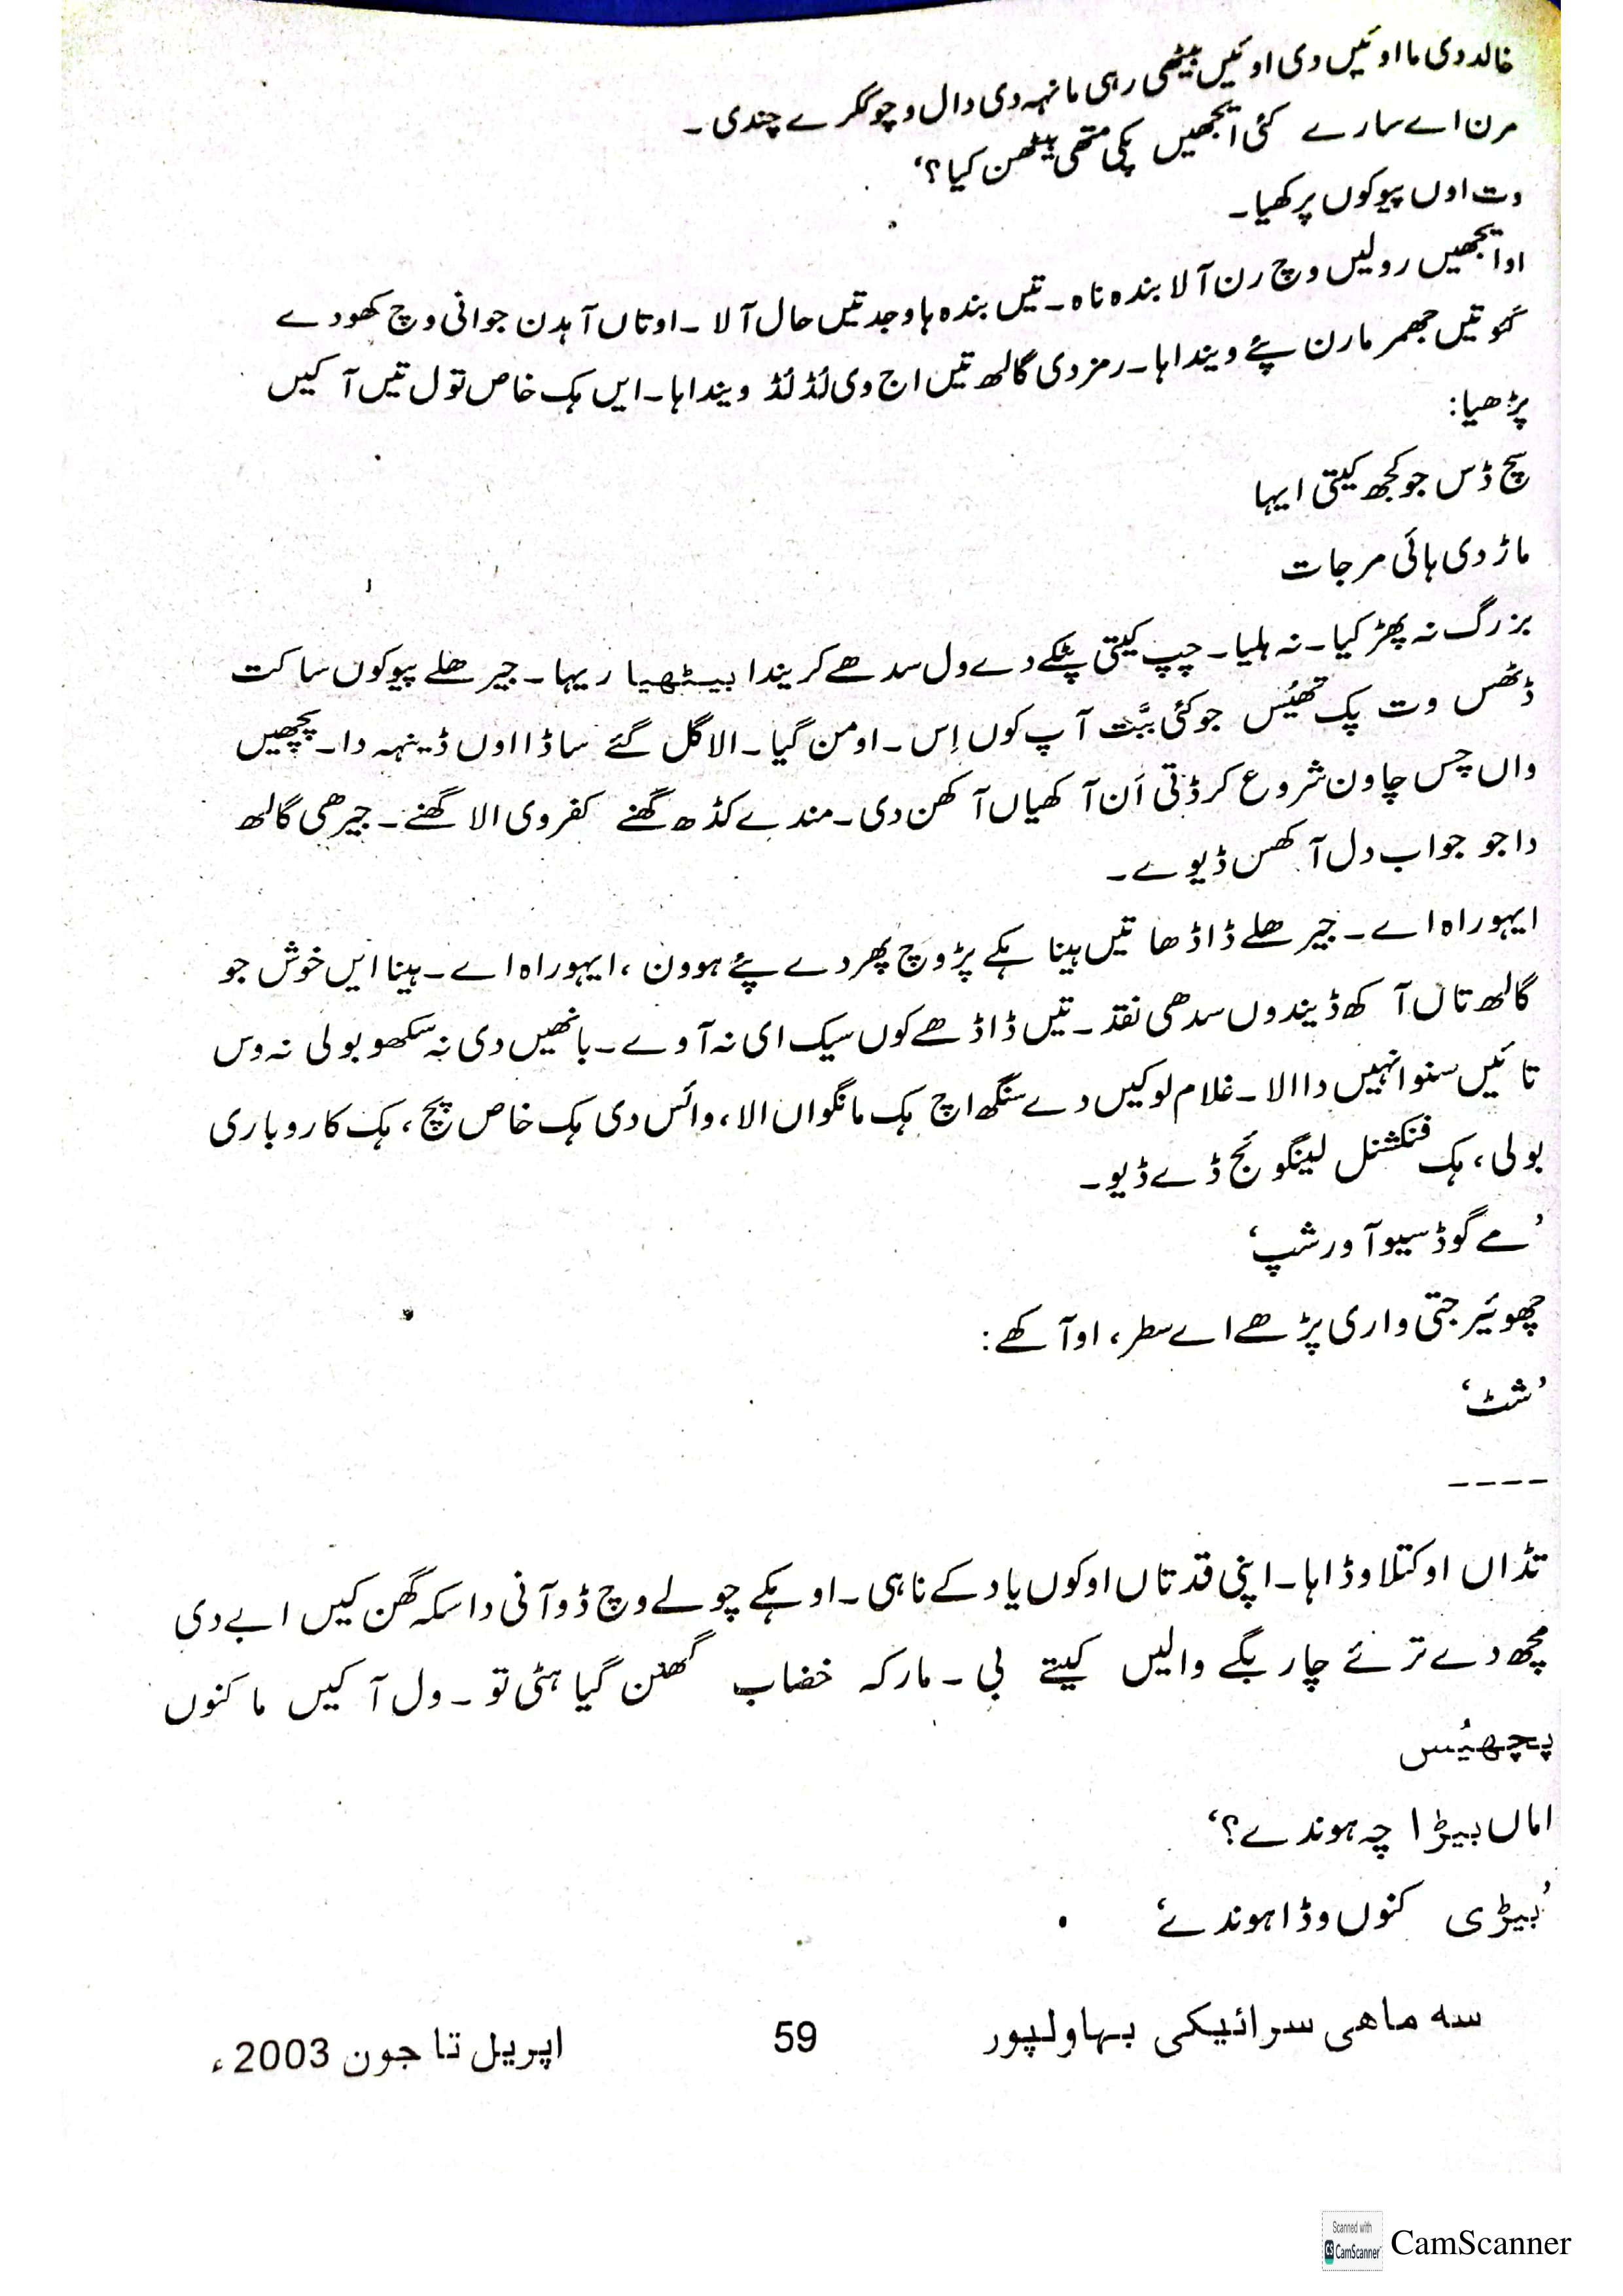 خالد دی ما اوئیں دی اوئیں بیٹھی رہی مانہہ دی دال وچو گکرے چندی ۔
مرن اے سارے کئی ایجھیں پکی متھی بیٹھن کیا؟‘
وت اوں پیو کوں پرکھیا۔
او ایجھیں رولیں وچ رن آلا بندہ ناہ۔ تیں بندہ ہا وجد تیں حال آلا ۔ او تاں آہدن جوانی وچ کھو دے
گئو تیں جھمر مارن پئے ویندا ہا۔ رمز دی گالھ تیں اج وی لڈ لڈ ویندا ہا۔ ایں ہک خاص تول تیں آ کیں
پڑھیا:
سچ ڈس جو کجھ کیتی ایہا
ماڑ دی ہائی مرجات
بزرگ نہ پھڑکیا۔ نہ ہلیا۔ چپ کیتی پٹکے دے ول سدھے کریندا بیٹھیا ریہا۔ جیرھلے پیو کوں ساکت
ڈٹھس وت پک تھیُس جو کئی بݨت آپ کوں اِس۔ او من گیا۔ الا گل گئے ساڈا اوں ڈینہہ دا۔ پچھیں
واں چس چاون شروع کر ڈتی اَن آکھیاں آکھن دی۔ مندے کڈھ گھنے کفر وی الا گھنے۔ جیرھی گالھ
دا جو جواب دل آکھس ڈیوے۔
ایہو راہ اے۔ جیرھلے ڈاڈھا تیں ہینا ہکے پڑ وچ پھردے پئے ہوون، ایہو راہ اے۔ ہینا ایں خوش جو
گالھ تاں آکھ ڈیندوں سدھی نقد۔ تیں ڈاڈھے کوں سیک ای نہ آوے۔ بانھیں دی نہ سکھو بولی نہ وس
تائیں سنو انہیں دا الا۔ غلام لوکیں دے سنگھ اچ ہک مانگواں الا، وائس دی ہک خاص پچ، ہک کاروباری
بولی، ہک فنکشنل لینگوئج ڈے ڈیو۔
’مے گوڈ سیو آور شپ‘
چھوئیر جتی واری پڑھے اے سطر، او آکھے:
’شٹ‘
----
تڈاں او کتلا وڈا ہا۔ اپنی قد تاں اوکوں یاد کے ناہی۔ او ہکے چولے وچ ڈو آنی دا سکہ گھن کیں ابے دی
مچھ دے ترئے چار بگے والیں کیتے بی ۔ مارکہ خضاب گھنن گیا ہٹی تو۔ ول آ کیں ما کنوں
پچھیُس
اماں بیڑا چہ ہوندے؟‘
’بیڑی کنوں وڈا ہوندے‘
سه ماھی سرائیکی بہاولپور
59
اپریل تا جون 2003ء
Scanned with
CS CamScanner
CamScanner